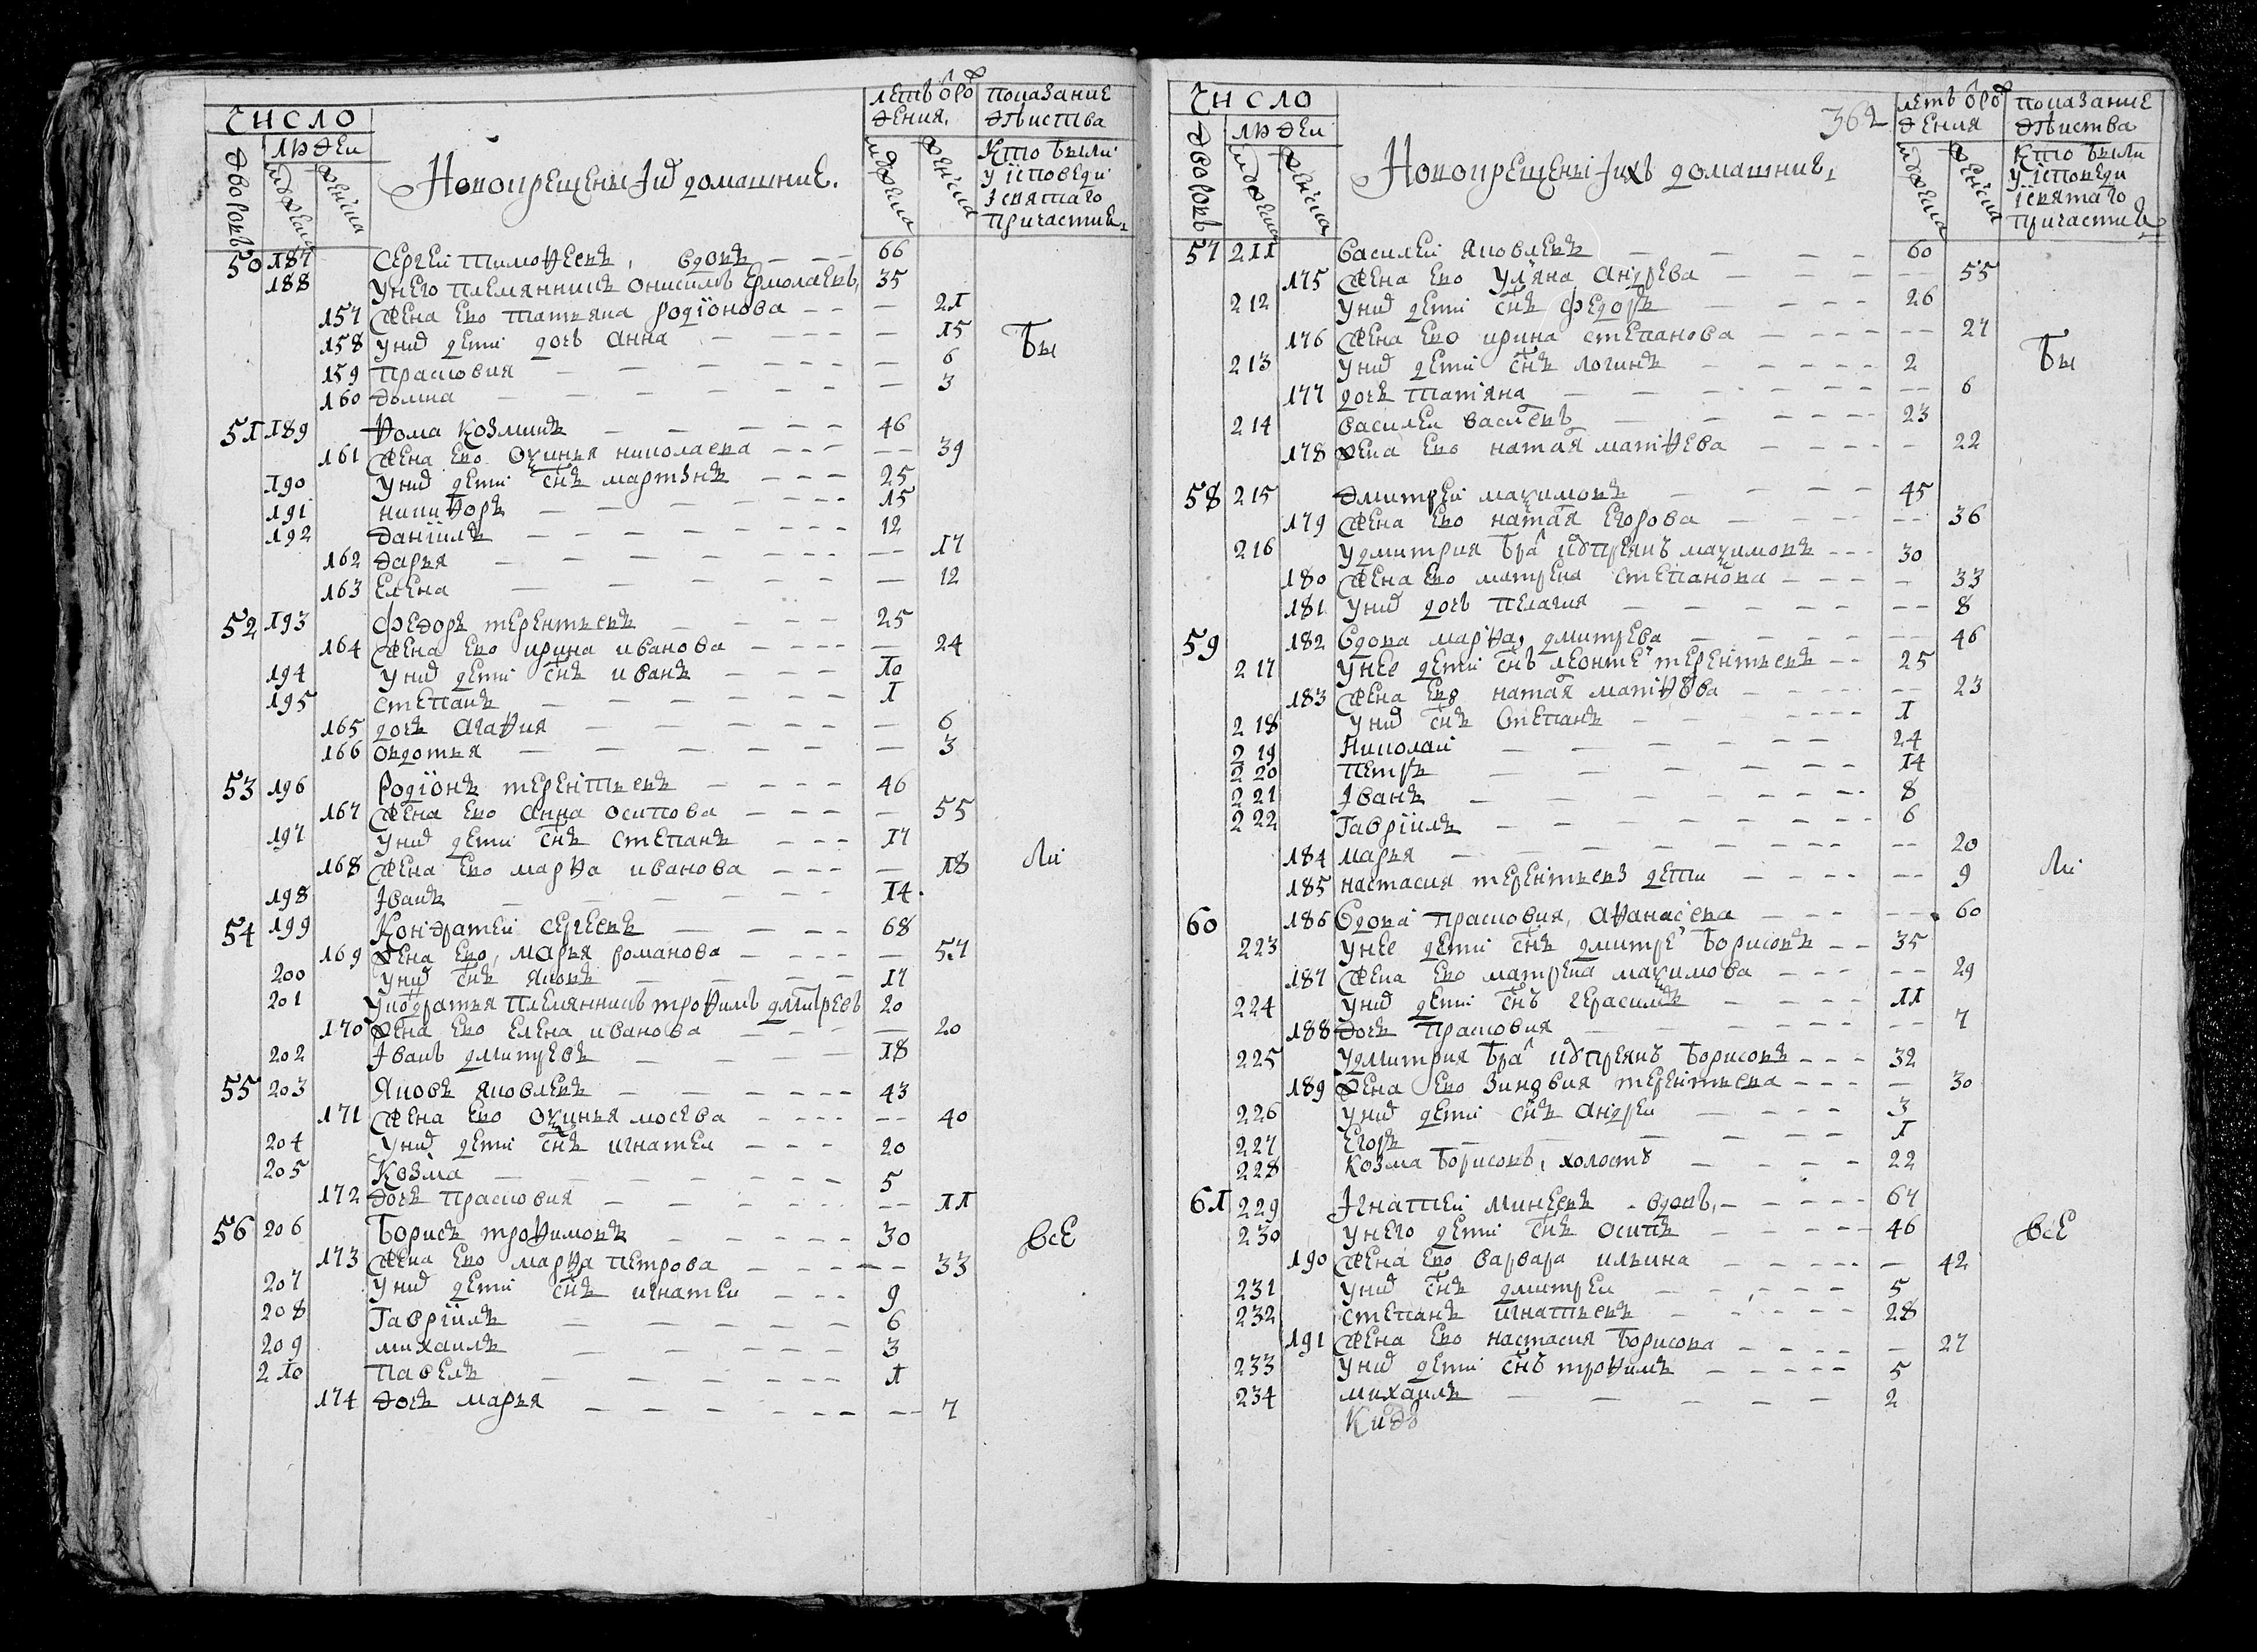 ЧИСЛО
людеи
дворовъ
мужеска
женска
Новокрещены И их домашние.
летъ от рождения.
мужеска
женска
показание
действа
Кто были
у исповеди
и святаго
причастия
50 187 Сергеи Тимофеевъ, вдовъ — — 66
188 У него племянникъ Онисимъ Ермолаевъ, 35
157 Жена ево Татьяна Родiонова — — — 21
158 У них дети дочь Анна — — — 15
159 Прасковия — — — 6
160 Домна — — — 3
Бы
51 189 Фома Козминъ — — — 46
161 Жена ево Оѯинья Николаева — — — 39
190 У них дети снъ Мартынъ — — — 25
191 Никифоръ — — — 15
192 Данiилъ — — — 12
162 Дарья — — — 17
163 Елена — — — 12
52 193 Федоръ Терентьевъ — — — 25
164 Жена ево Ирина Иванова — — — 24
194 У них дети снъ Иванъ — — — 10
195 Степанъ — — — 1
165 дочь Агафия — — — 6
166 Овдотья — — — 3
53 196 Родiонъ Терентьевъ — — — 46
167 Жена ево Анна Осипова — — — 55
197 У них дети снъ Степанъ — — — 17
168 Жена ево Марфа Иванова — — — 18
ли
198 Iванъ — — — 14
54 199 Кондратеи Сергеевъ — — — 68
169 Жена ево, Марья Романова — — — 57
200 У них снъ Яковъ — — — 17
201 У Кодратья племянникъ Трофимъ Дмитреевъ 20
170 Жена ево Елена Иванова — — — 20
202 Iванъ Дмитревъ — — — 18
55 203 Яковъ Яковлевъ — — — 43
171 Жена ево Оѯинья Мосева — — — 40
204 У них дети снъ Игнатеи — — — 20
205 Козма — — — 5
172 Дочь Прасковия — — — 11
56 206 Борисъ Трофимовъ — — — 30
все
173 Жена ево Марфа Петрова — — — 33
207 У них дети снъ Игнатеи — — — 9
208 Гаврiилъ — — — 6
209 Михаилъ — — — 3
210 Павелъ — — — 1
174 Дочь Марья — — — 7
362
ЧИСЛО
людеи
дворовъ
мужеска
женска
Новокрещены Iихъ домашние,
летъ от рождения
мужеска
женска
показание
действа
Кто были
у исповеди
i святаго
причастия
57 211 Василеи Яковлевъ — — — 60
175 Жена ево Ульяна Андрева — — — 55
212 У них дети снъ Федоръ — — — 26
176 Жена ево Ирина Степанова — — — 27
213 У них дети снъ Логинъ — — — 2
Бы
177 дочь Татияна — — — 6
214 Василеи Василевъ — — — 23
178 Жена ево Наталя Матфева — — — 22
58 215 Дмитреи Маѯимовъ — — — 45
179 Жена ево Наталя Егорова — — — 36
216 У Дмитрия брат Куприянъ Маѯимовъ — — — 30
180 Жена ево Матрена Степанова — — — 33
181 У них дочь Пелагия — — — 8
59 182 Вдова Марфа, Дмитрева — — — 46
217 У нее дети снъ Леонтеи Терентьевъ — — 25
183 Жена ево Наталя Матфева — — — 23
218 У них снъ Степанъ — — — 1
219 Николаи — — — 24
220 Петръ — — — 14
221 Iванъ — — — 8
222 Гаврiилъ — — — 6
184 Марья — — — 20
185 Настасия Терентьевы дети — — — 9
ли
60 186 Вдова Прасковия, Афанасьева — — — 60
223 У нее дети снъ Дмитреи Борисовъ — — 35
187 Жена ево Матрена Маѯимова — — — 29
224 У них дети снъ Герасимъ — — — 11
188 Дочь Прасковия — — — 7
225 У Дмитрия брат Куприянъ Борисовъ — — — 32
189 Жена ево Зиновия Терентьева — — — 30
226 У них дети снъ Андреи — — — 3
227 Егоръ — — — 1
228 Козма Борисовъ, холостъ — — — 22
61 229 Iгнатеи Минеевъ, вдовъ, — — — 67
230 У него дети снъ Осипъ — — — 46
все
190 Жена ево Варвара Ильина — — — 42
231 У них снъ Дмитреи — — — 5
232 Степанъ Игнатьевъ — — — 28
191 Жена ево Настасия Борисова — — — 27
233 У них дети снъ Трофимъ — — — 5
234 Михаилъ — — — 2